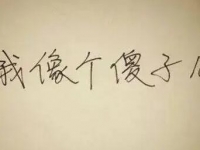 我像个傻子